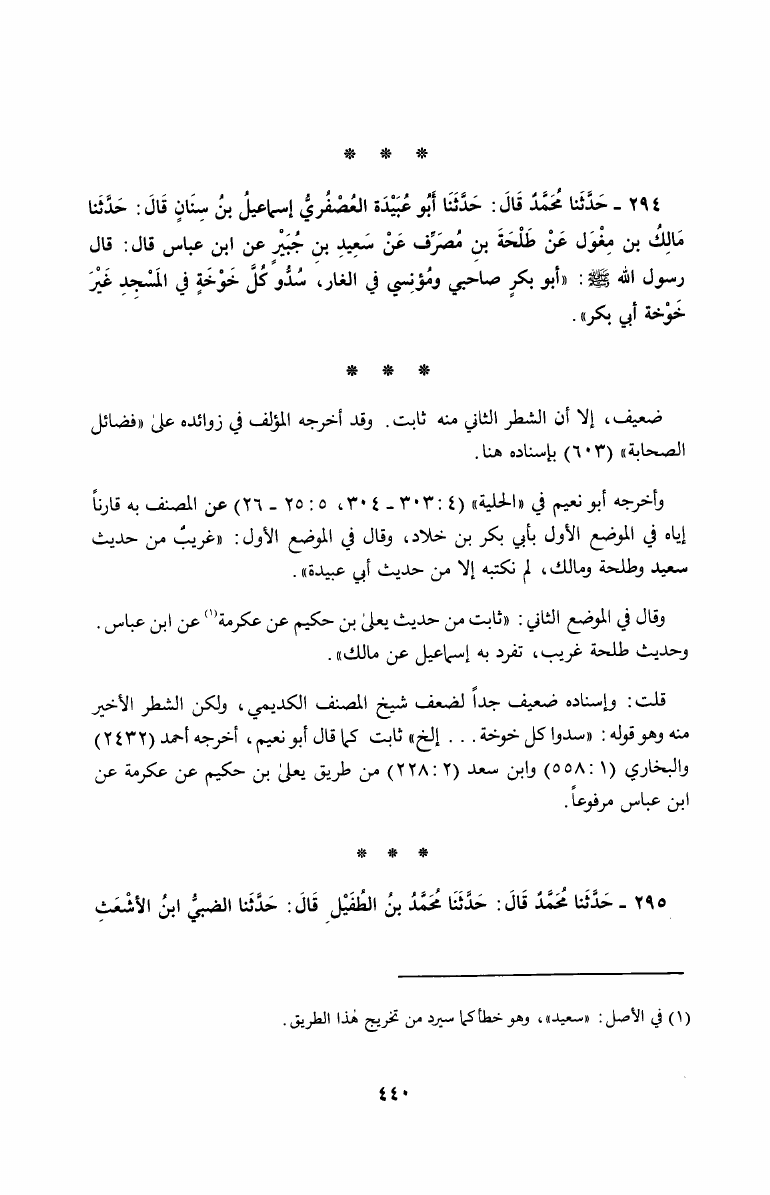 * * *
٢٩٤ ـ حَدَّثَنا مُحَمَّدٌ قَالَ : حَدَّثَنَا أَبُو عُبَيْدَة العُصْفُريُّ إسماعيلُ بنُ سِنَانٍ قَالَ : حَدَّثَنا
مَالِكُ بن مِغْوَل عَنْ طَلْحَةَ بنِ مُصَرِّف عَنْ سَعِيدِ بنِ جُبَيْرٍ عن ابن عباس قال : قال
رسول الله ﷺ : «أبو بكرٍ صاحبي ومُؤنِسي في الغار، سُدُّو كُلَّ خَوْخَةٍ في المَسْجِدِ غَيْرَ
خَوْخة أبي بكر» .
* * *
ضعيف، إلا أن الشطر الثاني منه ثابت . وقد أخرجه المؤلف في زوائده على «فضائل
الصحابة» (٦٠٣) بإسناده هنا .
وأخرجه أبو نعيم في «الحلية» (٤ : ٣٠٣ ـ ٣٠٤، ٥ : ٢٥ ـ ٢٦) عن المصنف به قارناً
إياه في الموضع الأول بأبي بكر بن خلاد، وقال في الموضع الأول : «غريبٌ من حديث
سعيد وطلحة ومالك، لم نكتبه إلا من حديث أبي عبيدة» .
وقال في الموضع الثاني : «ثابت من حديث يعلىٰ بن حكيم عن عكرمة(١) عن ابن عباس .
وحديث طلحة غريب، تفرد به إسماعيل عن مالك» .
قلت : وإسناده ضعيف جداً لضعف شيخ المصنف الكديمي، ولكن الشطر الأخير
منه وهو قوله : «سدوا كل خوخة . . . إلخ» ثابت كما قال أبو نعيم، أخرجه أحمد (٢٤٣٢)
والبخاري (١ : ٥٥٨) وابن سعد (٢ : ٢٢٨) من طريق يعلىٰ بن حكيم عن عكرمة عن
ابن عباس مرفوعاً .
* * *
٢٩٥ ـ حَدَّثَنا مُحَمَّدٌ قَالَ : حَدَّثَنَا مُحَمَّدُ بنُ الطُفَيْلِ قَالَ : حَدَّثَنا الضبيُّ ابنُ الأشْعَثِ
(١) في الأصل : «سعيد»، وهو خطأ كما سيرد من تخريج هٰذا الطريق .
٤٤٠